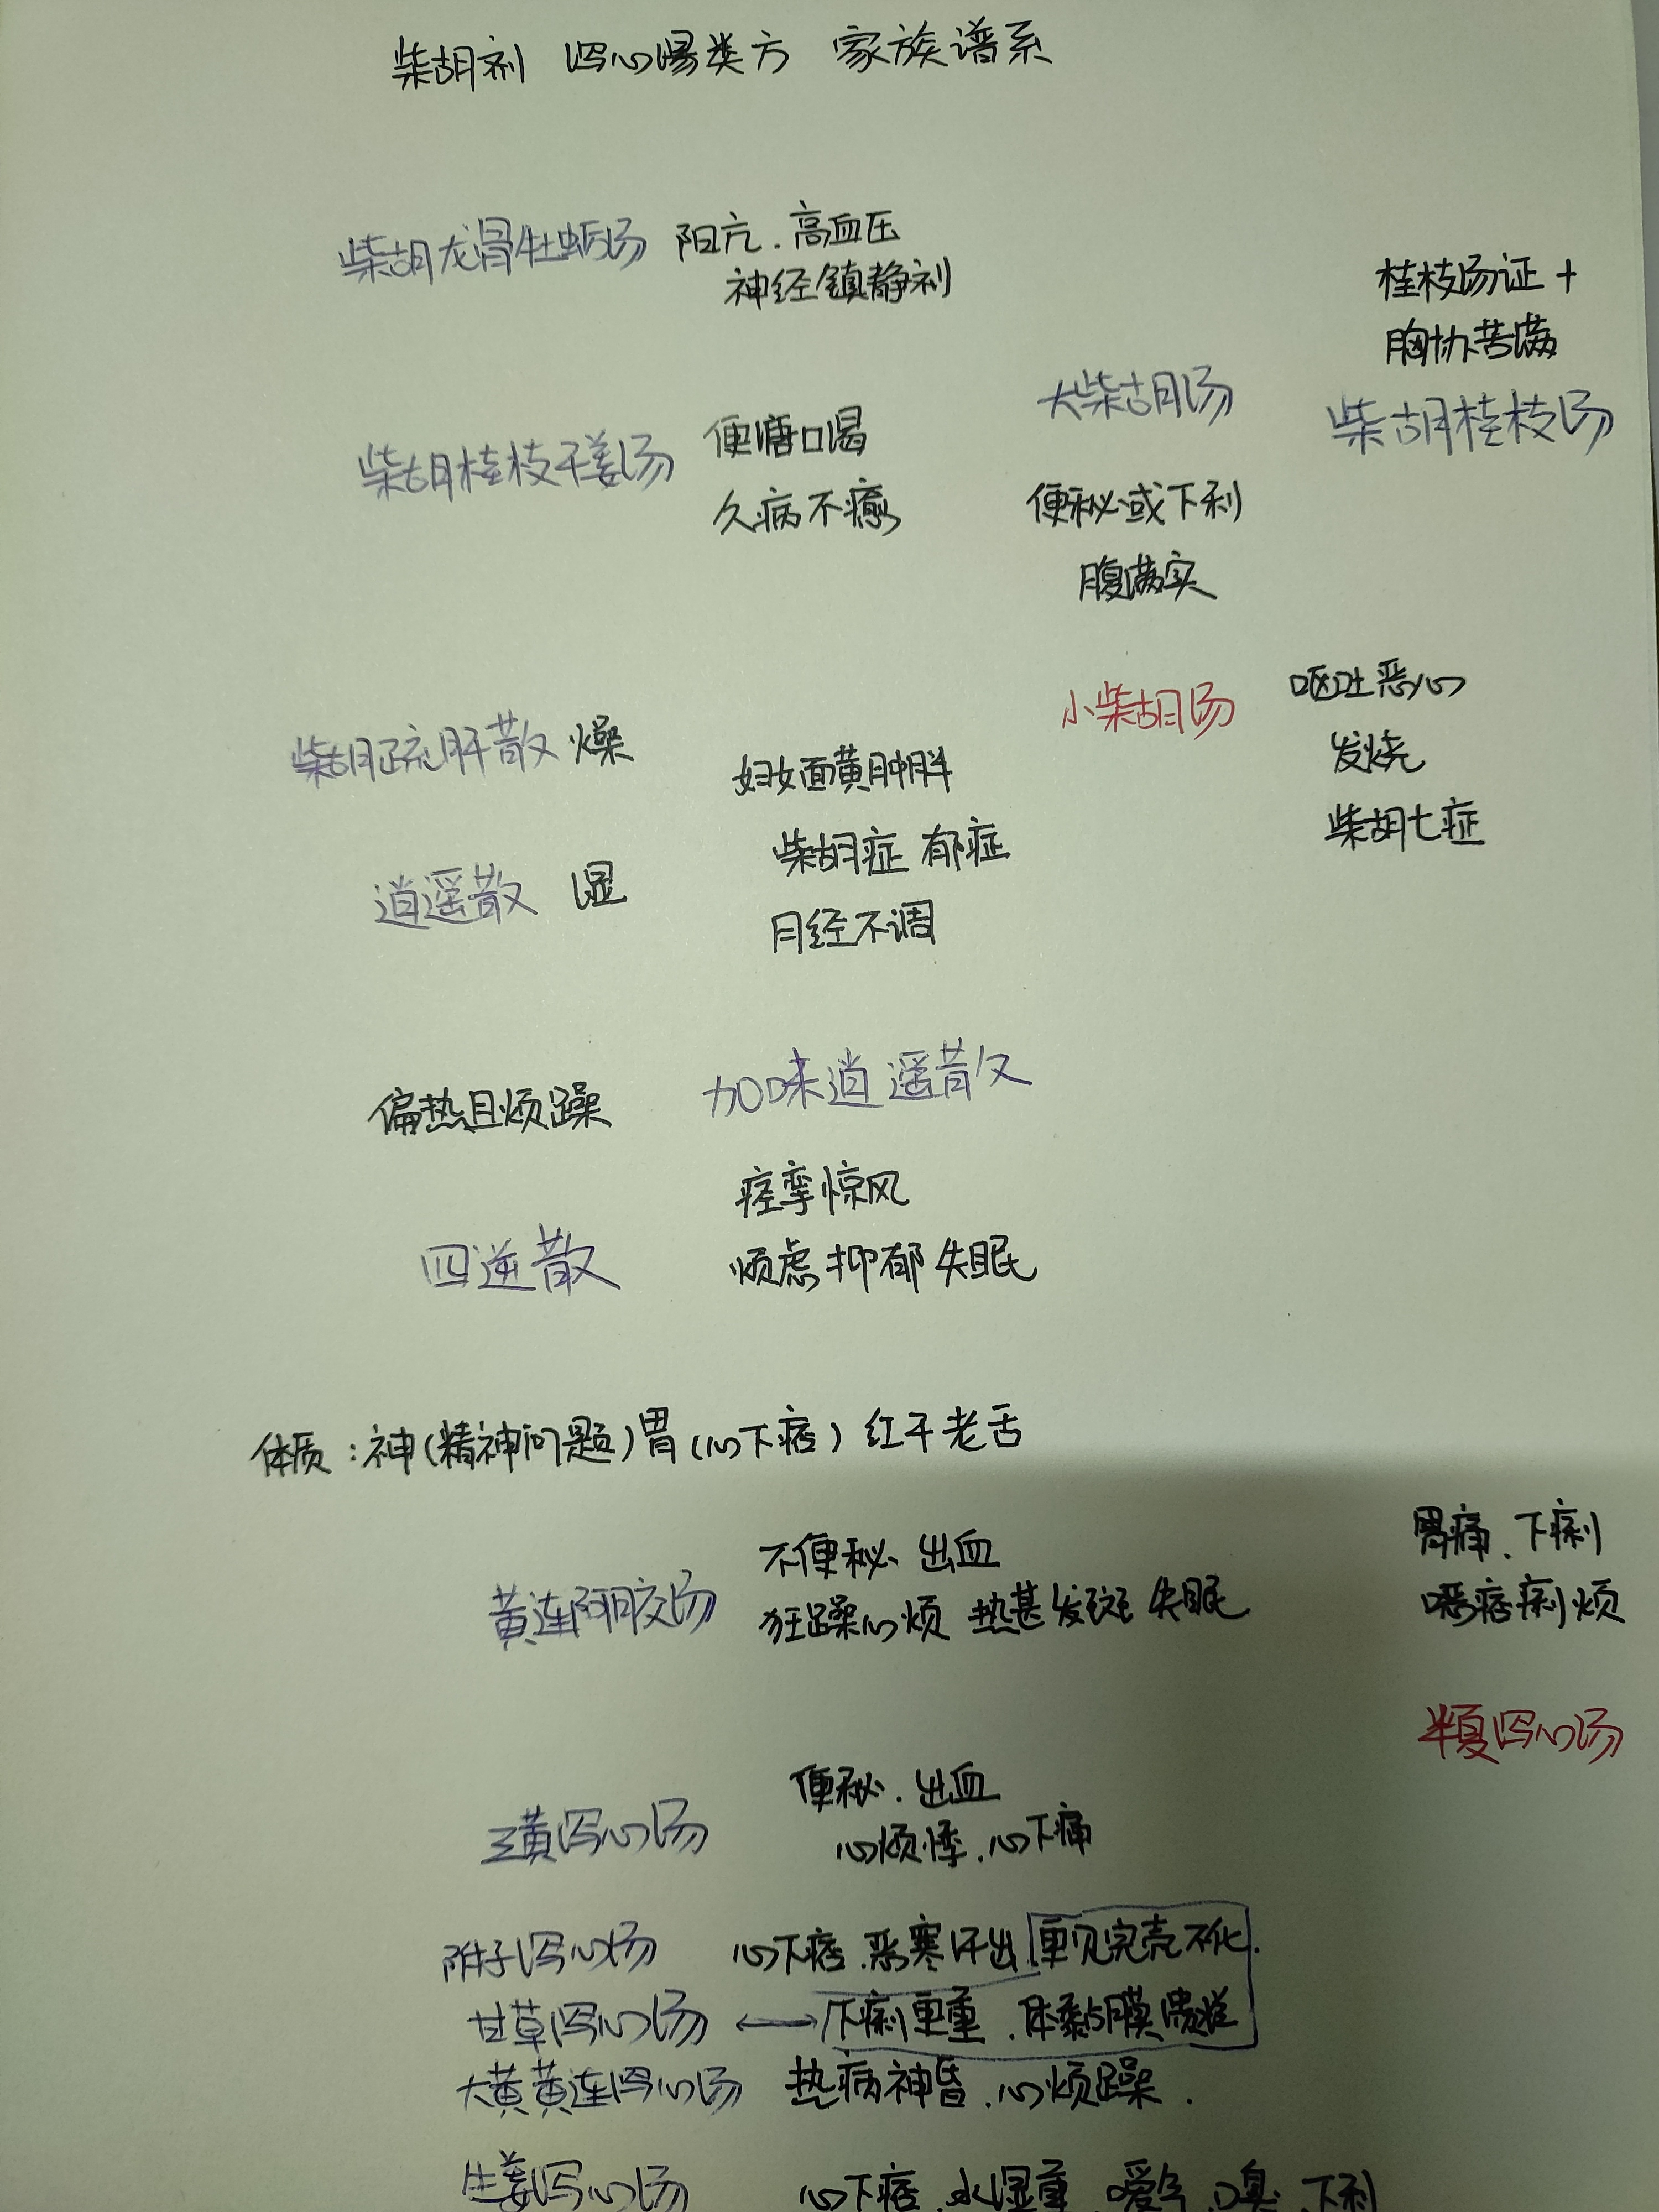 柴胡剂 泻心汤类方 家族谱系
柴胡龙骨牡蛎汤 阳亢.高血压
神经镇静剂
桂枝汤证+
胸协苦满
柴胡桂枝汤
大柴胡汤
便秘或下利
腹满实
柴胡桂枝干姜汤 便溏口渴
久病不癒
小柴胡汤 呕吐恶心
发烧
柴胡七症
柴胡疏肝散 燥
逍遥散 湿
妇女面黄肿胖
柴胡症 郁症
月经不调
偏热且烦躁 加味逍遥散
四逆散
痉挛惊风
烦虑抑郁失眠
体质:神(精神问题)胃(心下痞)红干老舌
黄连阿胶汤 不便秘、出血
狂躁心烦 热甚发斑 失眠
胃痛.下痢
噁痞痢烦
半夏泻心汤
三黄泻心汤 便秘.出血
心烦悸.心下痛
附子泻心汤 心下痞.恶寒汗出 更见完壳不化.
甘草泻心汤 ⟷ 下痢更重.体黏膜溃疡
大黄黄连泻心汤 热病神昏.心烦躁.
生姜泻心汤 心下痞.水湿重.嗳气.口臭.下利